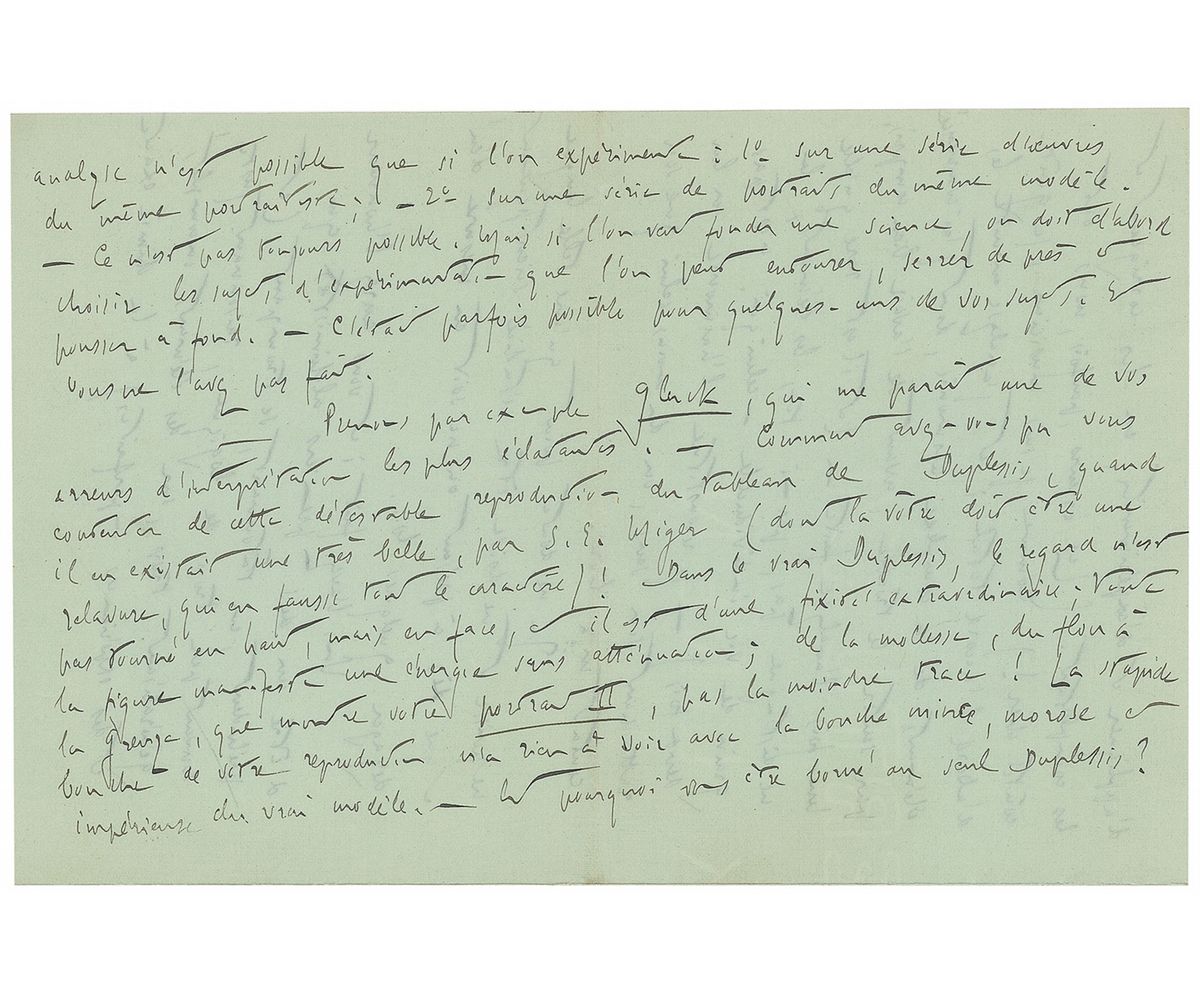 analyse n'est possible que si l'on expérimente : 1º– sur une série d'œuvres
du même portraitiste ; – 2º sur une série de portraits du même modèle.
— Ce n'est pas toujours possible. Mais si l'on veut fonder une science, on doit d'abord
choisir les sujets d'expérimentation que l'on peut entourer, serrer de près et
pousser à fond. — C'était parfois possible pour quelques-uns de vos sujets. Et
vous ne l'avez pas fait.
Prenons par exemple Gluck, qui me paraît une de vos
erreurs d'interprétation les plus éclatantes. — Comment avez-vous pu vous
contenter de cette détestable reproduction du tableau de Duplessis, quand
il en existait une très belle, par S. C. Miger (dont la vôtre doit être une
relavure, qui en fausse tout le caractère)! Dans le vrai Duplessis, le regard n'est
pas tourné en haut, mais en face, et il est d'une fixité extraordinaire ; toute
la figure manifeste une énergie sans atténuation ; de la mollesse, du flou à
la Greuze, que montre votre portrait II, pas la moindre trace ! La stupide
bouche de votre reproduction n'a rien à voir avec la bouche mince, morose et
impérieuse du vrai modèle. — Et pourquoi vous être borné au seul Duplessis ?